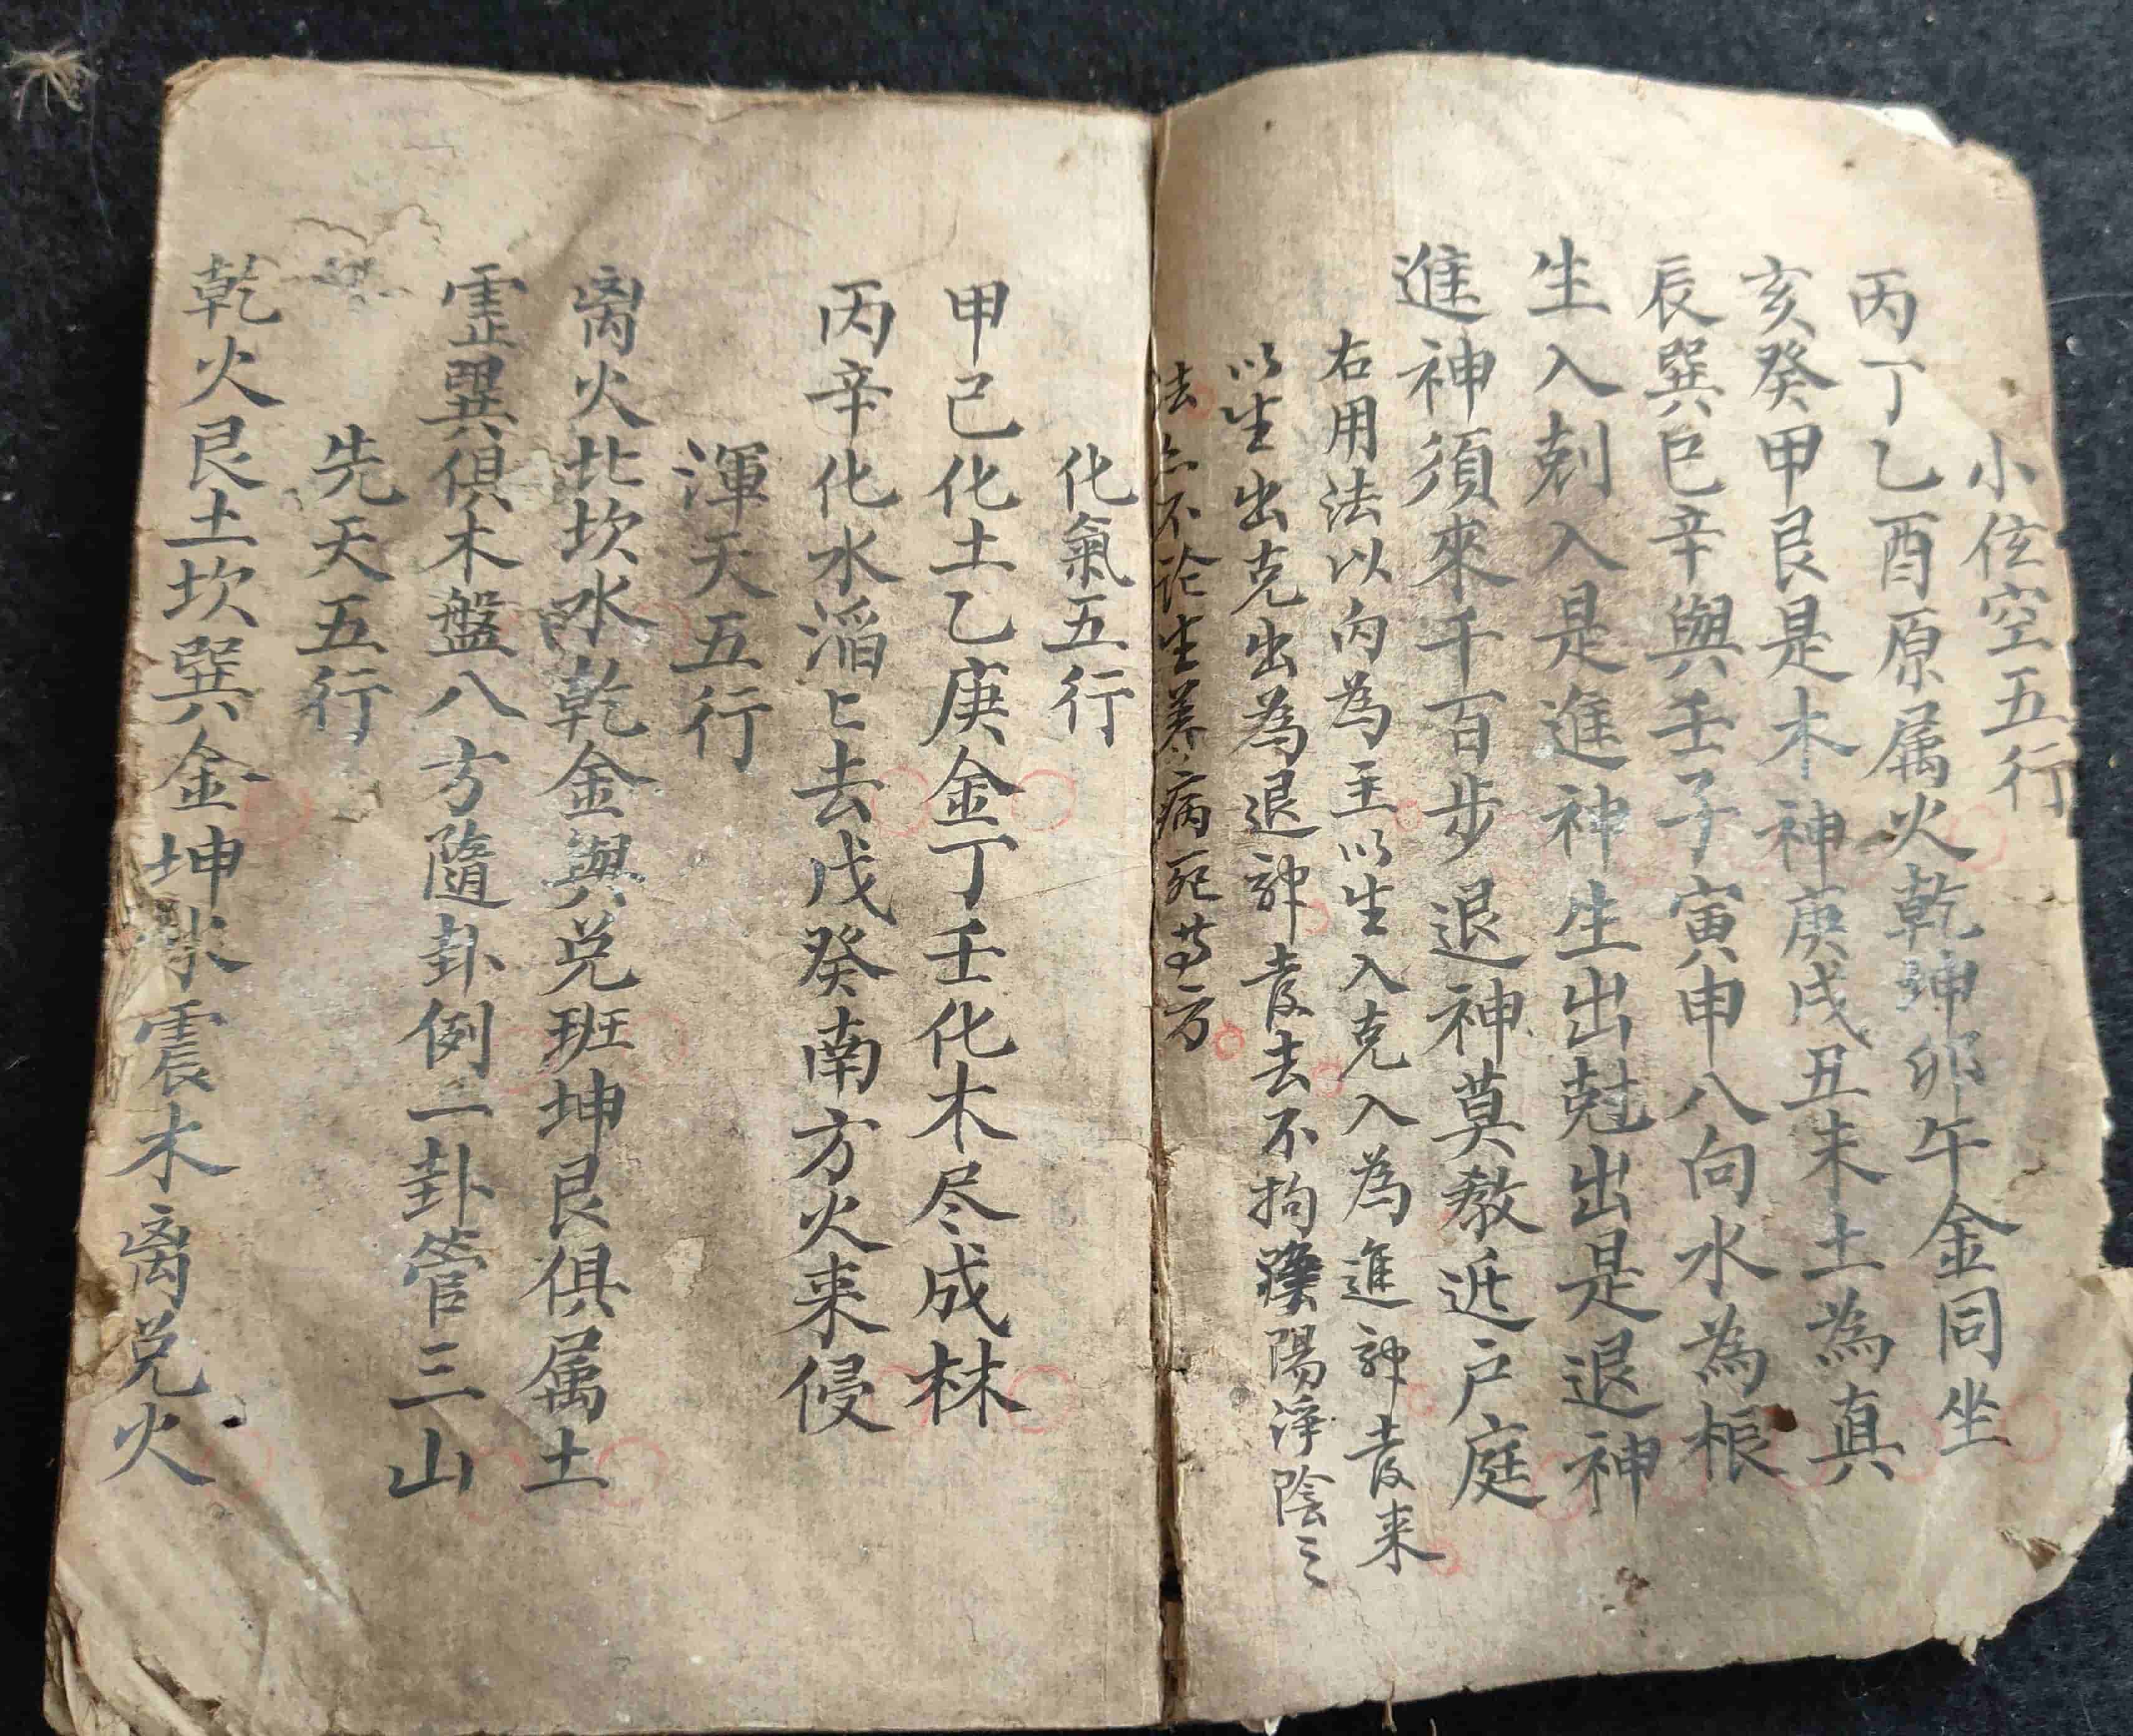 小玄空五行
丙丁乙酉原属火乾坤卯午金同坐
亥癸甲艮是木神庚戌丑未土為真
辰巽巳辛與壬子寅申八向水為根
生入剋入是進神生出尅出是退神
進神須來千百步退神莫教近户庭
右用法以向為主以生入克入為進神者来
以生出克出為退神者去不拘陽淨陰三
法亦不论生养病死等方
化氣五行
甲己化土乙庚金丁壬化木尽成林
丙辛化水滔匕去戊癸南方火来侵
渾天五行
离火北坎水乾金與兑班坤艮俱属土
震巽俱木盤八方隨卦例一卦管三山
先天五行
乾火艮土坎巽金坤水震木离兑火